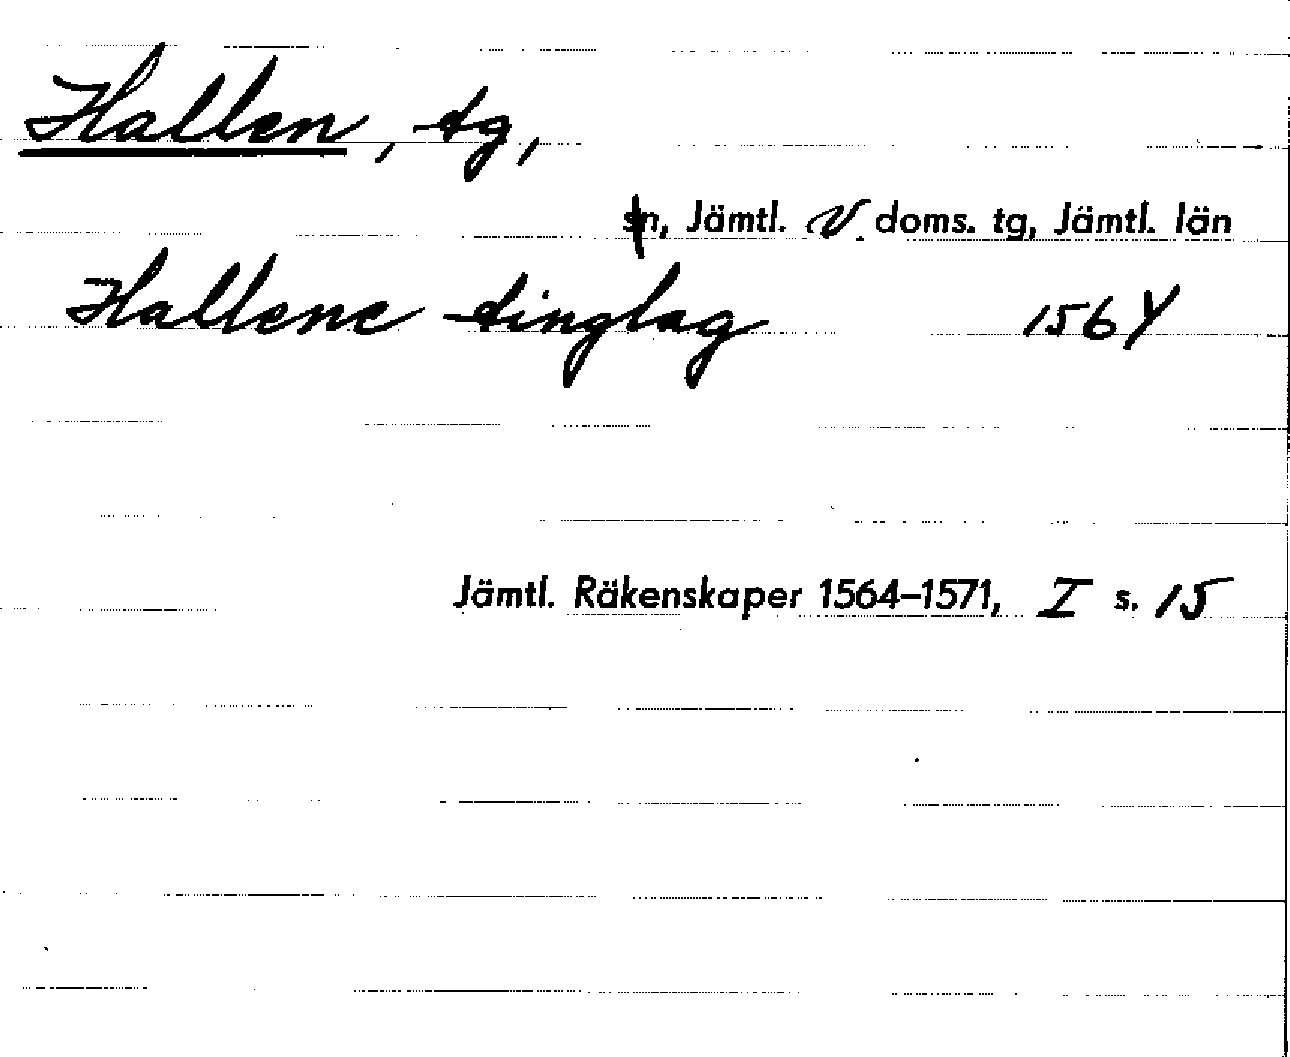 Hallen, tg,
sn, Jämtl. V. doms. tg, Jämtl. län
Hallene tinglag 1564
Jämtl. Räkenskaper 1564–1571, I s. 15